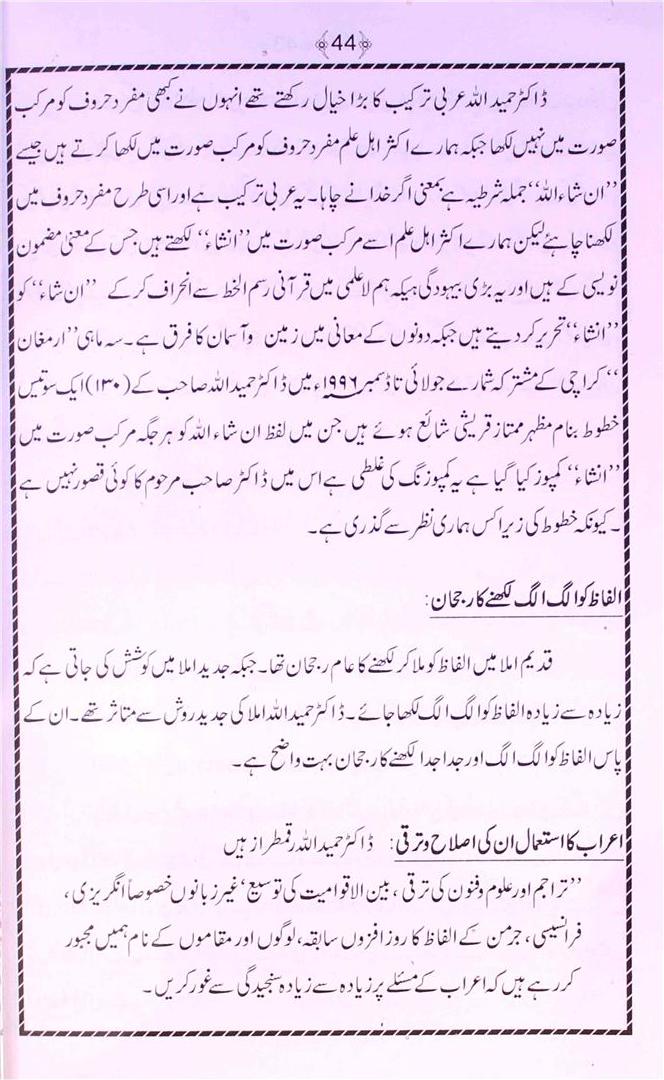 44
ڈاکٹر حمید اللہ عربی ترکیب کا بڑا خیال رکھتے تھے انہوں نے کبھی مفرد حروف کو مرکب
صورت میں نہیں لکھا جبکہ ہمارے اکثر اہل علم مفرد حروف کو مرکب صورت میں لکھا کرتے ہیں جیسے
’’ان شاء اللہ‘‘ جملہ شرطیہ ہے بمعنی اگر خدا نے چاہا۔ یہ عربی ترکیب ہے اور اسی طرح مفرد حروف میں
لکھنا چاہئے لیکن ہمارے اکثر اہل علم اسے مرکب صورت میں ’’انشاء‘‘ لکھتے ہیں جس کے معنی مضمون
نویسی کے ہیں اور یہ بڑی بیہودگی ہیکہ ہم لاعلمی میں قرآنی رسم الخط سے انحراف کر کے ’’ان شاء‘‘ کو
’’انشاء‘‘ تحریر کر دیتے ہیں جبکہ دونوں کے معانی میں زمین وآسمان کا فرق ہے۔ سہ ماہی ’’ارمغان
‘‘ کراچی کے مشترکہ شمارے جولائی تا ڈسمبر ۱۹۹۶ء میں ڈاکٹر حمید اللہ صاحب کے (۱۳۰) ایک سو تیس
خطوط بنام مظہر ممتاز قریشی شائع ہوئے ہیں جن میں لفظ ان شاء اللہ کو ہر جگہ مرکب صورت میں
’’انشاء‘‘ کمپوز کیا گیا ہے یہ کمپوزنگ کی غلطی ہے اس میں ڈاکٹر صاحب مرحوم کا کوئی قصور نہیں ہے
۔ کیونکہ خطوط کی زیراکس ہماری نظر سے گذری ہے۔
الفاظ کو الگ الگ لکھنے کا رجحان:
قدیم املا میں الفاظ کو ملا کر لکھنے کا عام رجحان تھا۔ جبکہ جدید املا میں کوشش کی جاتی ہے کہ
زیادہ سے زیادہ الفاظ کو الگ الگ لکھا جائے۔ ڈاکٹر حمید اللہ املا کی جدید روش سے متاثر تھے۔ ان کے
پاس الفاظ کو الگ الگ اور جدا جدا لکھنے کا رجحان بہت واضح ہے۔
اعراب کا استعمال ان کی اصلاح و ترقی: ڈاکٹر حمید اللہ رقمطراز ہیں
’’تراجم اور علوم وفنون کی ترقی، بین الاقوامیت کی توسیع‘ غیر زبانوں خصوصاً انگریزی،
فرانسیسی، جرمن کے الفاظ کا روز افزوں سابقہ، لوگوں اور مقاموں کے نام ہمیں مجبور
کر رہے ہیں کہ اعراب کے مسئلے پر زیادہ سے زیادہ سنجیدگی سے غور کریں۔